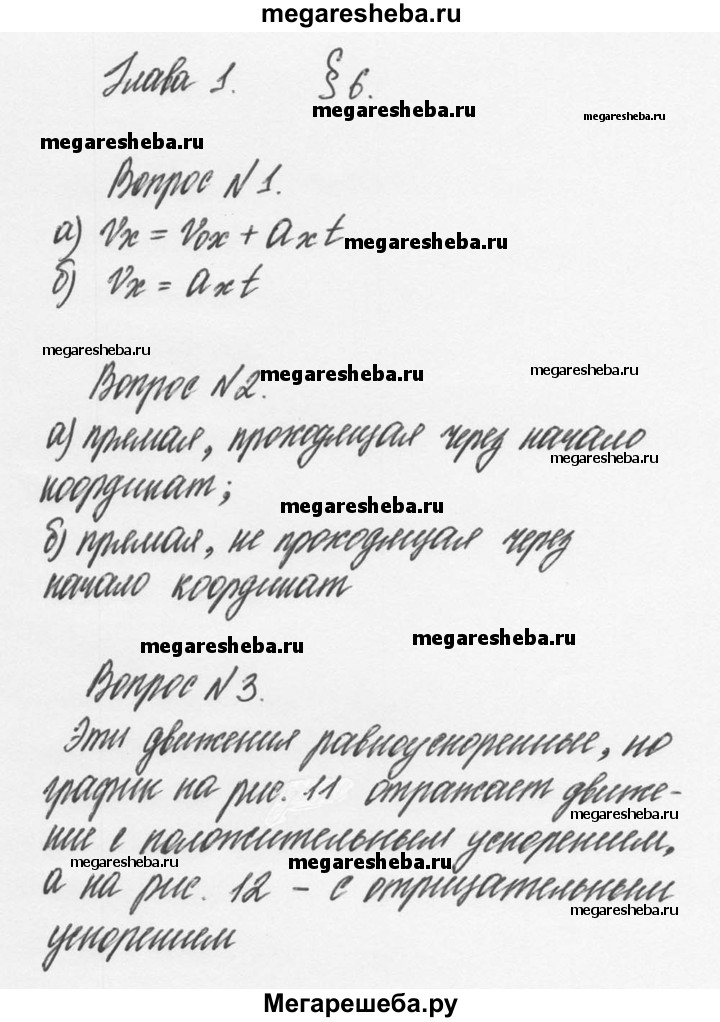 megaresheba.ru
Глава 1. § 6.
megaresheba.ru
megaresheba.ru
megaresheba.ru
Вопрос N 1.
а) Vx = V0x + axt
megaresheba.ru
б) Vx = axt
megaresheba.ru
Вопрос N 2.
megaresheba.ru
megaresheba.ru
а) прямая, проходящая через начало
megaresheba.ru
координат;
megaresheba.ru
б) прямая, не проходящая через
начало координат
megaresheba.ru
megaresheba.ru
Вопрос N 3.
Эти движения равноускоренные, но
график на рис. 11 отражает движе-
megaresheba.ru
ние с положительным ускорением,
megaresheba.ru
megaresheba.ru
а на рис. 12 - с отрицательным
megaresheba.ru
ускорением
Мегарешеба.ру